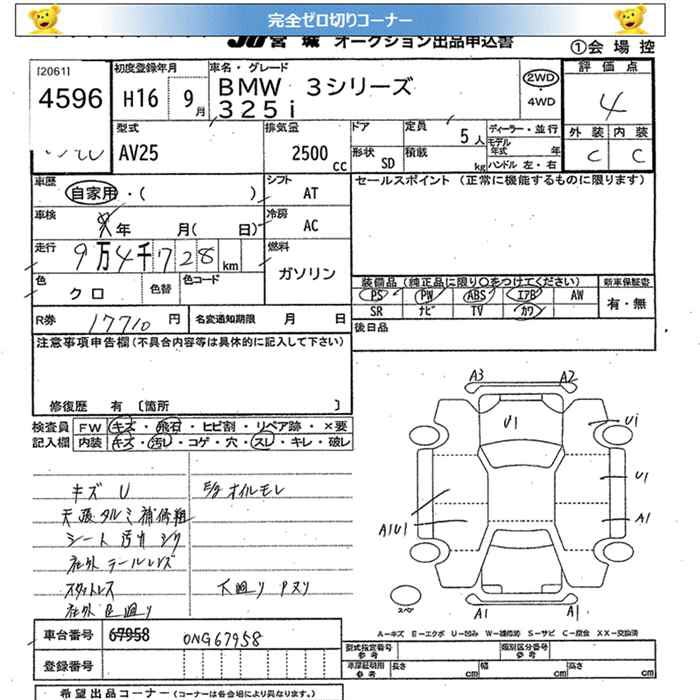 完全ゼロ切りコーナー
JU宮城 オークション出品申込書
①会場控
[2061]
4596
初度登録年月
H16 9月
車名・グレード
BMW 3シリーズ
325i
2WD
・
4WD
評価点
4
外装 内装
C C
型式
AV25
排気量
2500cc
ドア
形状 SD
定員 5人
積載 kg
ディーラー・並行
モデル年式 年
ハンドル 左・右
車歴
自家用・( )
シフト
AT
セールスポイント (正常に機能するものに限ります)
車検
年 月( 日)
冷房
AC
走行
9万4千728km
燃料
ガソリン
色
クロ
色替
色コード
装備品 (純正品に限り○をつけてください)
新車保証書
PS PW ABS エアB AW
有・無
SR ナビ TV カワ
R券 17710円
名変通知期限 月 日
後日品
注意事項申告欄(不具合内容等は具体的に記入して下さい)
修復歴 有 [箇所 ]
検査員記入欄
FW キズ・飛石・ヒビ割・リペア跡・×要
内装 キズ・汚レ・コゲ・穴・スレ・キレ・破レ
キズ U
E/g オイルモレ
天張タルミ補修粗
シート 汚レ シワ
社外テールレンズ
スタットレス
下廻り Pヌリ
A3 A2
U1
U1
U1
A1U1
A1
A1 A1
スペア
A-キズ E-エクボ U-凹み W-補修跡 S-サビ C-腐食 XX-交換済
車台番号 67958 0NG67958
登録番号
型式指定番号 参考
類別区分番号 参考
車庫証明用 参考 長さ cm 幅 cm 高さ cm
希望出品コーナー (コーナーは各会場により異なります。)